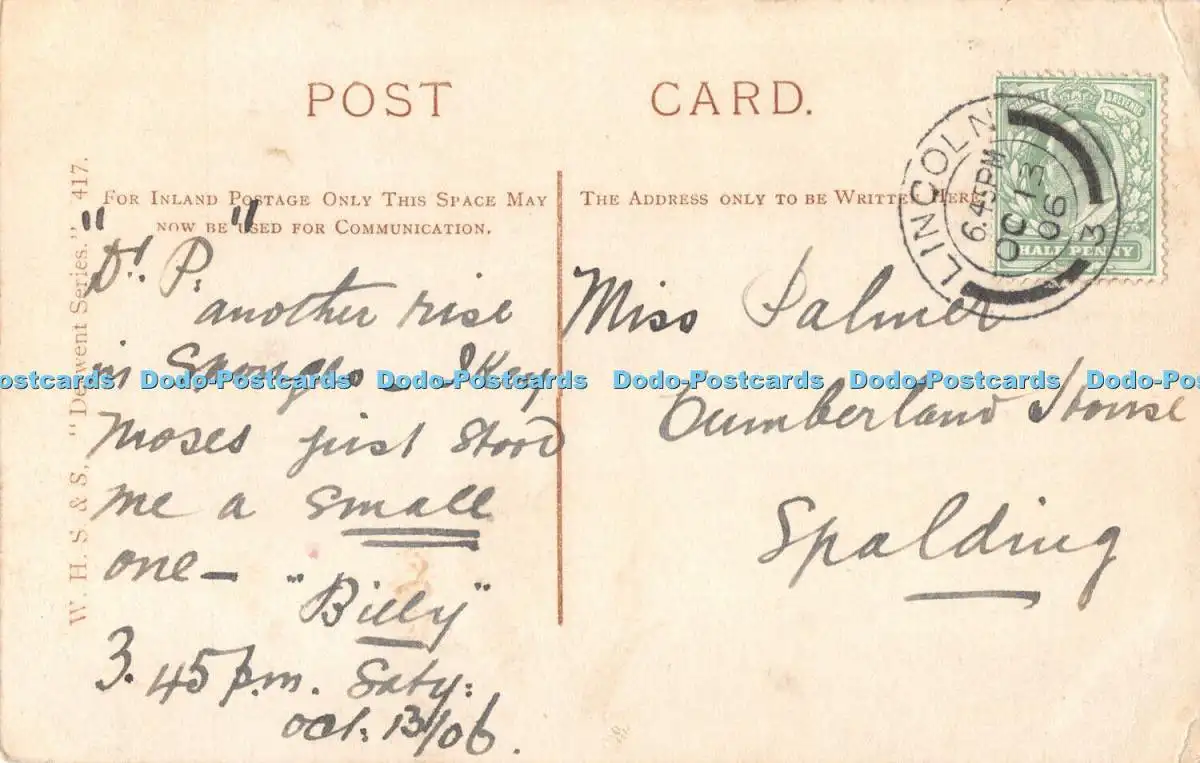 POST CARD.
FOR INLAND POSTAGE ONLY THIS SPACE MAY
NOW BE USED FOR COMMUNICATION.
THE ADDRESS ONLY TO BE WRITTEN HERE
W. H. S. & S. "Derwent Series." 417.
"Dr. P."
another rise
in Sponges – Ikey
Moses just stood
me a small
one –
"Billy"
3.45 p.m. Saty:
Oct. 13/06.
Miss Palmer
Cumberland House
Spalding
LINCOLN
6.45PM
OC 13
06
3
HALF PENNY
Dodo-Postcards Dodo-Postcards Dodo-Postcards Dodo-Postcards Dodo-Postcards